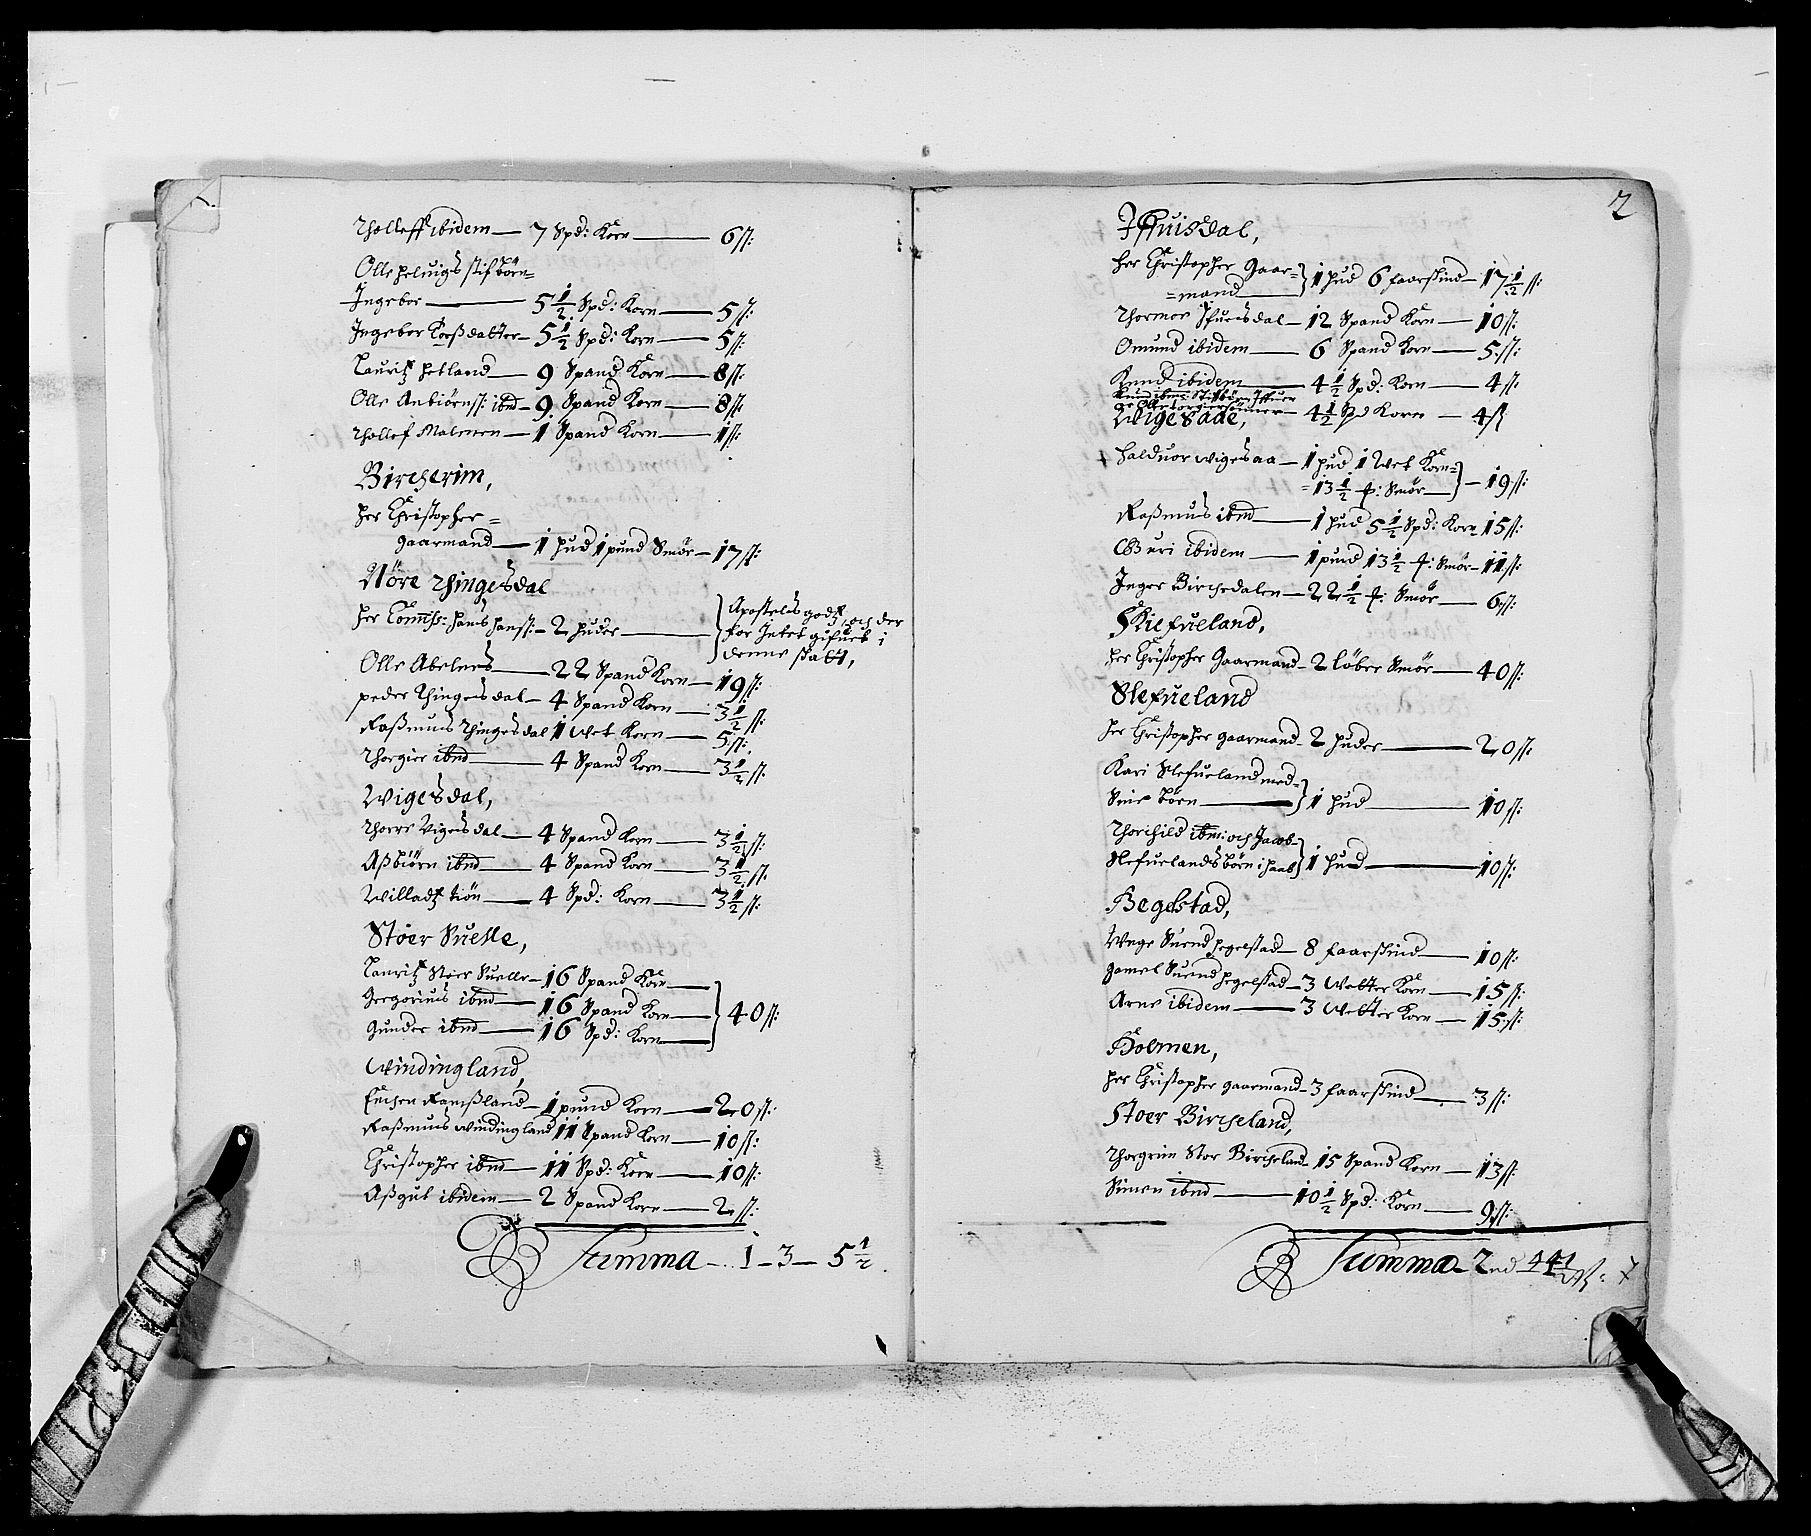 Tholleff ibidem — 7 Spd: Korn — 6 ß:
Olle heluigs stifbörn=
Ingebor — 5 1/2 Spd: Korn — 5 ß:
Ingebor Toeßdatter — 5 1/2 Spd: Korn — 5 ß:
Lauritz hetland — 9 Spand Korn — 8 ß:
Olle Anbiörnss: ibnd — 9 Spand Korn — 8 ß:
Thollef Malmen — 1 Spand Korn — 1 ß:
Bircherim,
her Christopher=
gaarmand — 1 hud 1 pund Smör — 17 ß:
Nöre Thingesdal
her Commiss: hans hanss: — 2 huder — } Apostelis godtz, och der
for Intet gifuet i
denne skatt,
Olle Abelnes — 22 Spand Korn — 19 ß:
peder Thingesdal — 4 Spand Korn — 3 1/2 ß:
Raßmus Thingesdal 1 Wet Korn — 5 ß:
Thorgier ibnd — 4 Spand Korn — 3 1/2 ß:
Wigesdal,
Thorre Vigesdal — 4 Spand Korn — 3 1/2 ß:
Aßbiörn ibnd — 4 Spand Korn — 3 1/2 ß:
Willadtz tiön — 4 Spd: Korn — 3 1/2 ß:
Stoer Suelle,
Lauritz Stoer Suelle — 16 Spand Korn —
Gregorius ibnd — 16 Spand Korn — } 40 ß:
Gunder ibnd — 16 Spd: Korn —
Windingland,
Encken Ramßland — 1 pund Korn — 20 ß:
Raßmus Windingland 11 Spand Korn — 10 ß:
Christopher ibnd — 11 Spd: Korn — 10 ß:
Aßgut ibidem — 2 Spand Korn — 2 ß:
Summa — 1 — 3 — 5 1/2
2
Ifuisdal,
her Christopher Gaar=
=mand — } 1 hud 6 faarskind — 17 1/2 ß:
Thormoe Ifuesdal — 12 Spand Korn — 10 ß:
Omund ibidem — 6 Spand Korn — 5 ß:
Knud ibidem — 4 1/2 Spd: Korn — 4 ß:
4 1/2 Spd Korn — 4 ß
Wigesaae,
+ halduor wigesaa — 1 hud 1 Wet Korn=
=13 1/2 #: Smör — } — 19 ß:
Raßmus ibnd — 1 hud 5 1/2 Spd: Korn — 15 ß:
Guri ibidem — 1 pund 13 1/2 #: Smör — 11 ß:
Inger Birchedalen — 22 1/2 #: Smör — 6 ß:
Skiefueland,
her Christopher Gaarmand — 2 löber Smör — 40 ß:
Slefueland
her Christopher gaarmand — 2 huder — 20 ß:
Kari Slefueland med=
Sine börn — } 1 hud — 10 ß:
Thorchild ibm: och Jacob
Slefuelands börn i haab } 1 hud — 10 ß:
Hegelstad,
Unge Suend hegelstad — 8 faarskind — 10 ß:
Gamel Suend hegelstad — 3 Wetter Korn — 15 ß:
Arne ibidem — 3 Wetter Korn — 15 ß:
Holmen,
her Christopher gaarmand — 3 faarskind — 3 ß:
Stoer Bircheland,
Thorgrim Stor Bircheland — 15 Spand Korn — 13 ß:
Simen ibnd — 10 1/2 Spd: Korn — 9 ß:
Summa — 2 rd 44 1/2 ß: